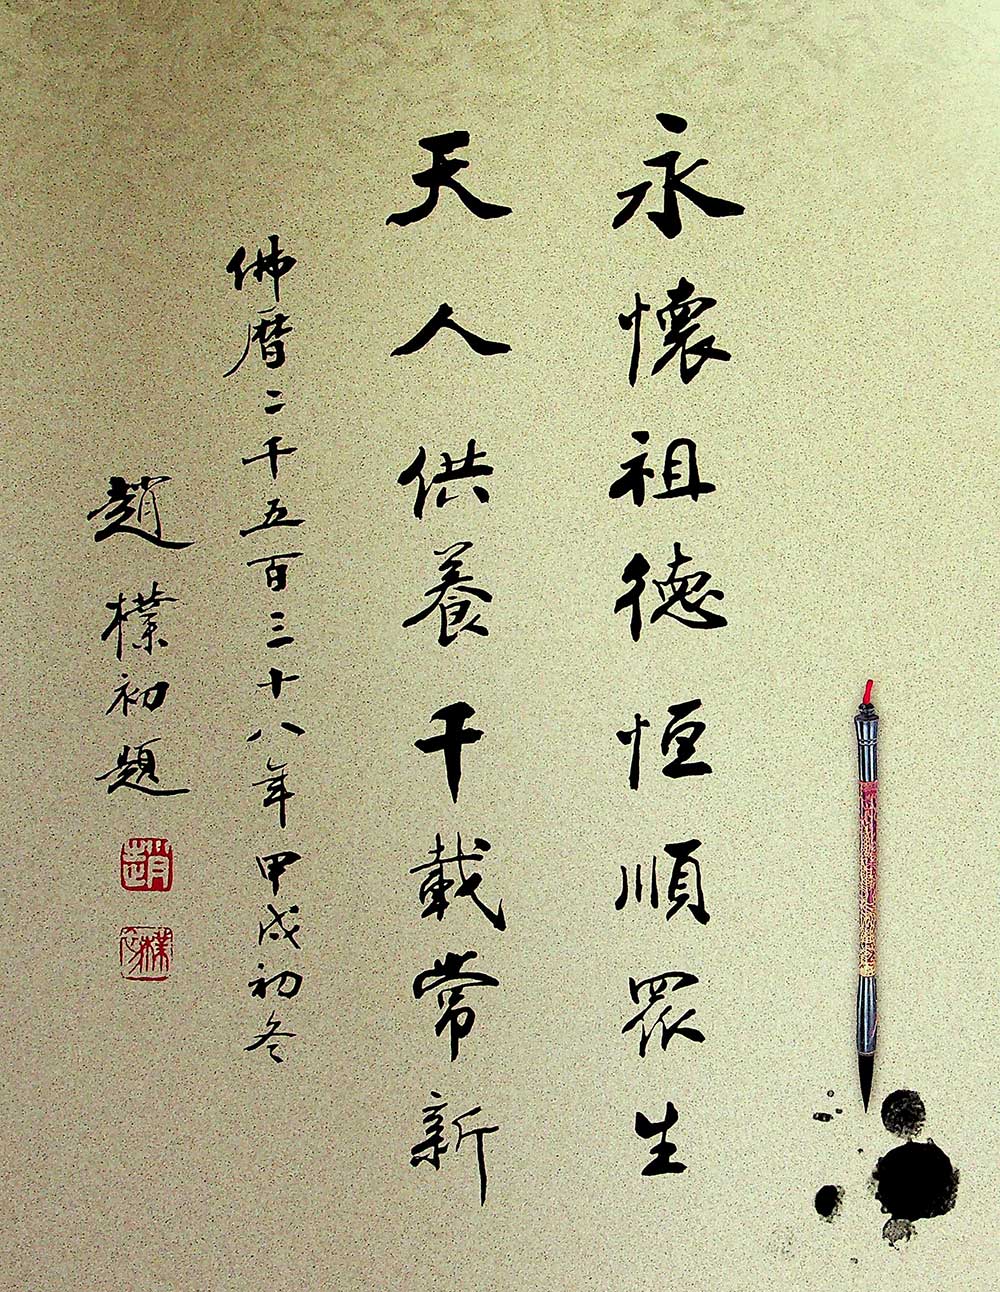 永懷祖德恒順眾生
天人供養千載常新
佛曆二千五百三十八年甲戌初冬
趙樸初題
趙